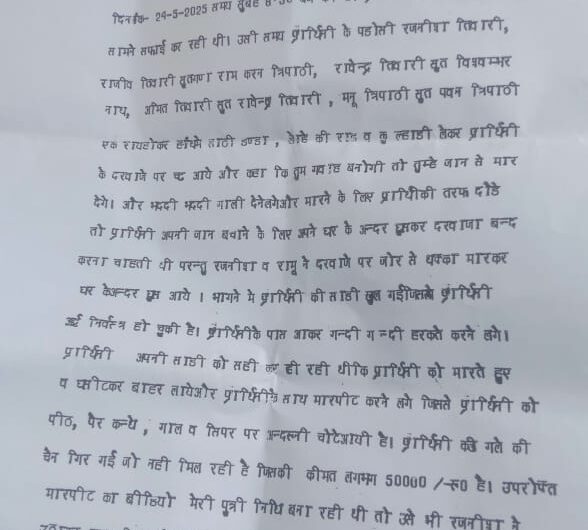 दिनांक- 24-5-2025 समय सुबह
सामने सफाई कर रही थी। उसी समय प्रार्थिनी के पडोसी रजनीश तिवारी,
राजीव तिवारी सुतगण राम करन त्रिपाठी, राघेन्द्र तिवारी सुत विश्वम्भर
नाथ, अमित तिवारी सुत राघेन्द्र तिवारी , मनू त्रिपाठी सुत पवन त्रिपाठी
एक रायहोकर हाथमे लाठी डण्डा , लोहे की राड व कुल्हाडी लेकर प्रार्थिनी
के दरवाजे पर चढ आये और कहा कि तुम गवाह बनोगी तो तुम्हे जान से मार
देगे। और भददी भददी गाली देनेलगेऔर मारने के लिए प्रार्थिनीकी तरफ दौडे
तो प्रार्थिनी अपनी जान बचाने के लिए अपने घर के अन्दर घुसकर दरवाजा बन्द
करना चाहती थी परन्तु रजनीश व रामू ने दरवाजे पर जोर से धक्का मारकर
घर केअन्दर घुस आये । भागने मे प्रार्थिनी की साडी खुल गईजिससे प्रार्थिनी
अर्द्ध निर्वस्त्र हो चुकी है। प्रार्थिनीके पास आकर गन्दी गन्दी हरकते करने लगे।
प्रार्थिनी अपनी साडी को सही कर ही रही थीकि प्रार्थिनी को मारते हुए
व घसीटकर बाहर लायेऔर प्रार्थिनीके साथ मारपीट करने लगे जिससे प्रार्थिनी को
पीठ, पैर कन्धे , गाल व सिपर पर अन्दरूनी चोटेआयी है। प्रार्थिनी के गले की
चैन गिर गई जो नही मिल रही है जिसकी कीमत लगभग 50000 /-रू0 है। उपरोक्त
मारपीट का बीडियो मेरी पुत्री निधि बना रही थी तो उसे भी रजनीश ने